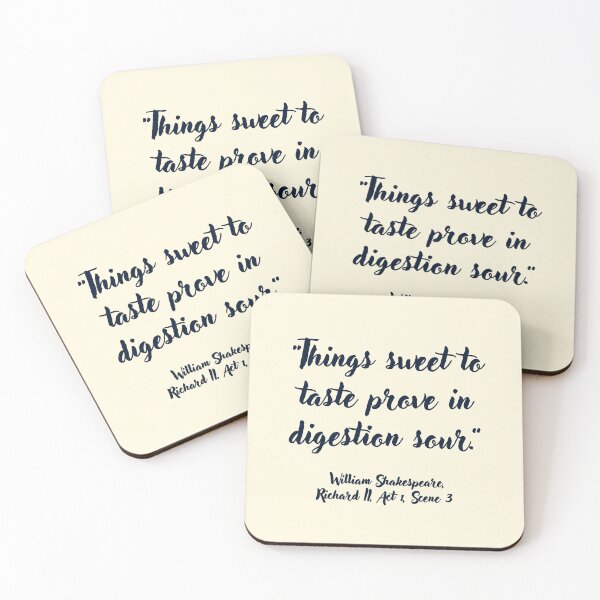 "Things sweet to
taste prove in
sour
3
"Things sweet to
taste prove in
digestion sour."
"Things sweet to
taste prove in
digestion sour."
William Shakespe
Richard II, Act 1,
"Things sweet to
taste prove in
digestion sour."
William Shakespeare,
Richard II, Act 1, Scene 3